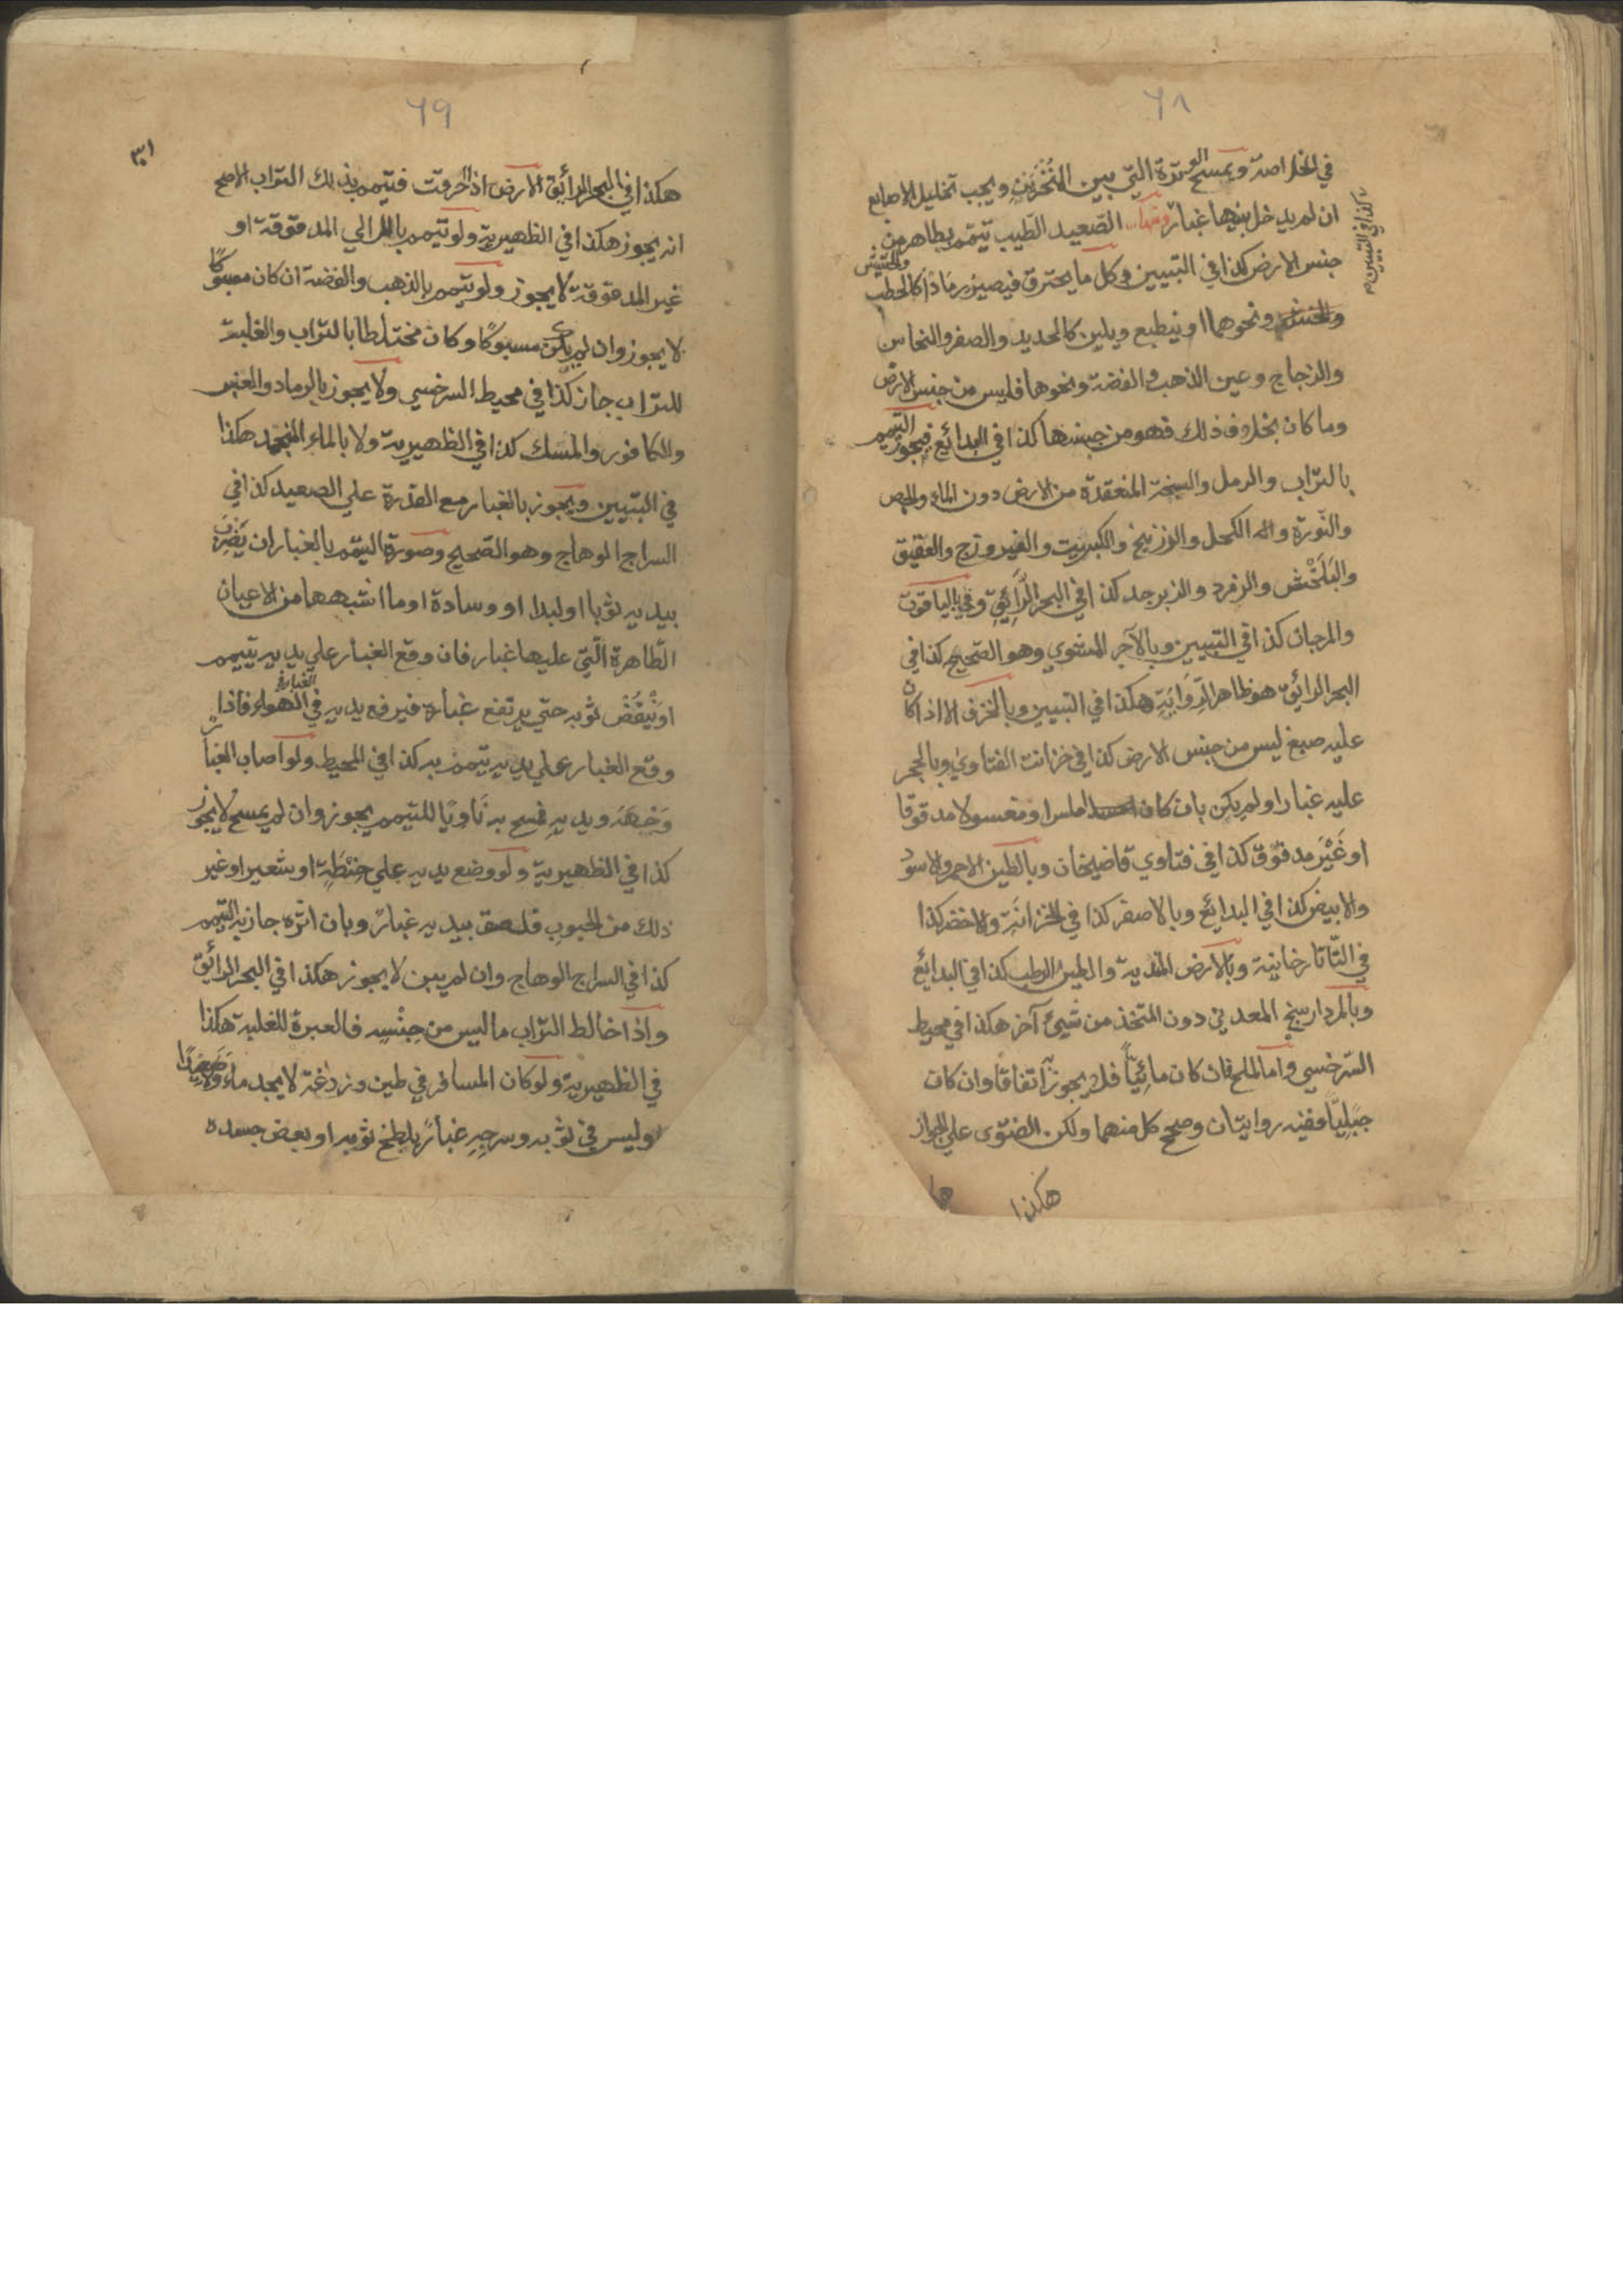 ٦٨
في الخلاصة ويمسح الوترة التي بين المنخرين ويجب تخليل الاصابع
ان لم يدخل بينها غبار ومنها الصعيد الطيب تيمم بطاهر من
كذا في التبيين
جنس الارض كذا في التبيين وكل ما يحترق فيصير رمادا كالحطب والحشيش
ونحوهما او ينطبع ويلين كالحديد والصفر والنحاس
والزجاج وعين الذهب والفضة ونحوهما فليس من جنس الارض
وما كان بخلاف ذلك فهو من جنسها كذا في البدائع فيجوز التيمم
بالتراب والرمل والسبخة المنعقدة من الارض دون الماء والجص
والنورة والكحل والزرنيخ والكبريت والفيروزج والعقيق
والبلخش والزمرد والزبرجد كذا في البحر الرائق وفي بالياقوت
والمرجان كذا في التبيين وبالآجر المشوي وهو الصحيح كذا في
البحر الرائق هو ظاهر الرواية هكذا في التبيين وبالخزف الا اذا كان
عليه صبغ ليس من جنس الارض كذا في خزانت الفتاوي وبالحجر
عليه غبار او لم يكن بان كان املس او مغسولا مدقوقا
او غير مدقوق كذا في فتاوي قاضيخان وبالطين الاحمر والاسود
والابيض كذا في البدائع وبالاصفر كذا في الخزانة والاخضر كذا
في التاتارخانية وبالارض الندية والطين الرطب كذا في البدائع
وبالمردارسنج المعدني دون المتخذ من شيئ آخر هكذا في محيط
السرخسي واما الملح فان كان مائيا فلا يجوز به اتفاقا وان كان
جبليا ففيه روايتان وصحح كل منهما ولكن الفتوى علي الجواز
هكذا
٦٩
هكذا في البحر الرائق الارض اذا احرقت فتيمم بذلك التراب الاصح
انه يجوز هكذا في الظهيرية ولو تيمم باللالي المدقوقة او
غير المدقوقة لا يجوز ولو تيمم بالذهب والفضة ان كان مسبوكا
لا يجوز وان لم يكن مسبوكا وكان مختلطا بالتراب والغلبة
للتراب جاز كذا في محيط السرخسي ولا يجوز بالرماد والعنبر
والكافور والمسك كذا في الظهيرية ولا بالماء المنجمد هكذا
في التبيين ويجوز بالغبار مع القدرة علي الصعيد كذا في
السراج الوهاج وهو الصحيح وصورة التيمم بالغبار ان يضرب
بيديه ثوبا او لبدا او وسادة او ما اشبهها من الاعيان
الطاهرة التي عليها غبار فان وقع الغبار علي يديه تيمم
او ينفض ثوبه حتي يرتفع غباره فيرفع يديه في الغبار في الهواء فاذا
وقع الغبار علي يديه تيمم به كذا في المحيط ولو اصاب الغبار
وجهه ويديه فمسح به ناويا للتيمم يجوز وان لم يمسح لا يجوز
كذا في الظهيرية ولو وضع يديه علي حنطة او شعير او غير
ذلك من الحبوب فلصق بيديه غبار وبان اثره جاز به التيمم
كذا في السراج الوهاج وان لم يبين لا يجوز هكذا في البحر الرائق
واذا خالط التراب ما ليس من جنسه فالعبرة للغلبة هكذا
في الظهيرية ولو كان المسافر في طين وردغة لا يجد ماء ولا صعيدا
وليس في ثوبه وسرجه غبار يلطخ ثوبه او بعض جسده